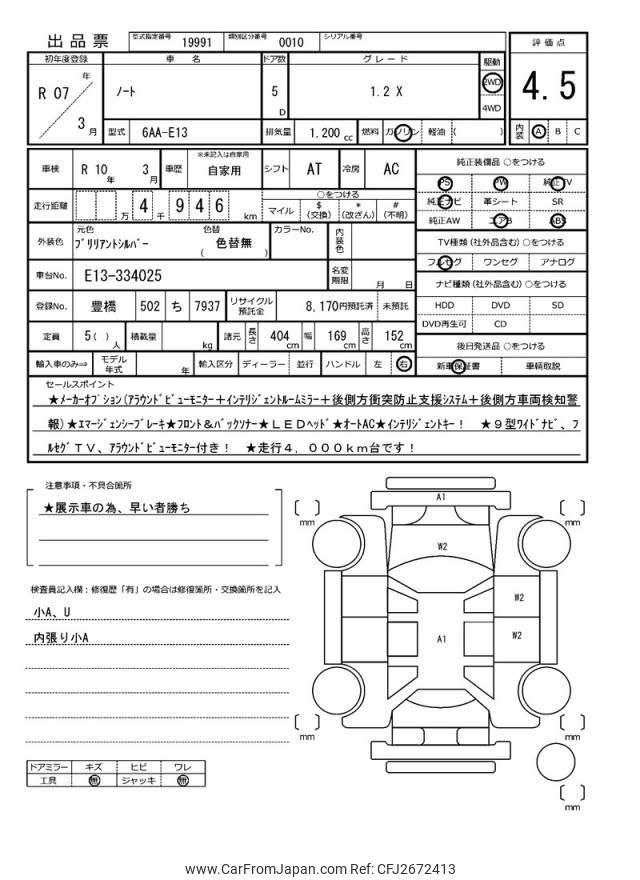 出品票
型式指定番号 19991 類別区分番号 0010 シリアル番号
初年度登録 車名 ドア数 グレード 駆動 評価点
R 07 年 3 月 ノート 5 D 1.2 X 2WD 4WD 4.5
型式 6AA-E13 排気量 1.200 cc 燃料 ガソリン 軽油 ( ) 内装 A B C
車検 R 10 年 3 月 車歴 ※未記入は自家用 自家用 シフト AT 冷房 AC
走行距離 万 4 千 9 4 6 km ○をつける マイル $(交換) *(改ざん) #(不明)
外装色 元色 ブリリアントシルバー 色替 ( 色替無 ) カラーNo. 内装色
車台No. E13-334025 名変期限 月 日
登録No. 豊橋 502 ち 7937 リサイクル預託金 8,170円預託済 未預託
定員 5( ) 人 積載量 kg 諸元 長さ 404 cm 幅 169 cm 高さ 152 cm
輸入車のみ⇒ モデル年式 年 輸入区分 ディーラー 並行 ハンドル 左 右
純正装備品 ○をつける
PS PW 純正TV
純正ナビ 革シート SR
純正AW エアB ABS
TV種類 (社外品含む) ○をつける
フルセグ ワンセグ アナログ
ナビ種類 (社外品含む) ○をつける
HDD DVD SD
DVD再生可 CD
後日発送品 ○をつける
新車保証書 車輌取説
セールスポイント
★メーカーオプション(アラウンドビューモニター+インテリジェントルームミラー+後側方衝突防止支援システム+後側方車両検知警
報)★エマージェンシーブレーキ★フロント&バックソナー★LEDヘッド★オートAC★インテリジェントキー! ★9型ワイドナビ、フ
ルセグTV、アラウンドビューモニター付き! ★走行4,000km台です!
注意事項・不具合箇所
★展示車の為、早い者勝ち
検査員記入欄:修復歴「有」の場合は修復箇所・交換箇所を記入
小A、U
内張り小A
ドアミラー キズ ヒビ ワレ
工具 無 ジャッキ 無
A1
mm mm
W2
W2
A1 W2
mm mm
mm
www.CarFromJapan.com Ref: CFJ2672413